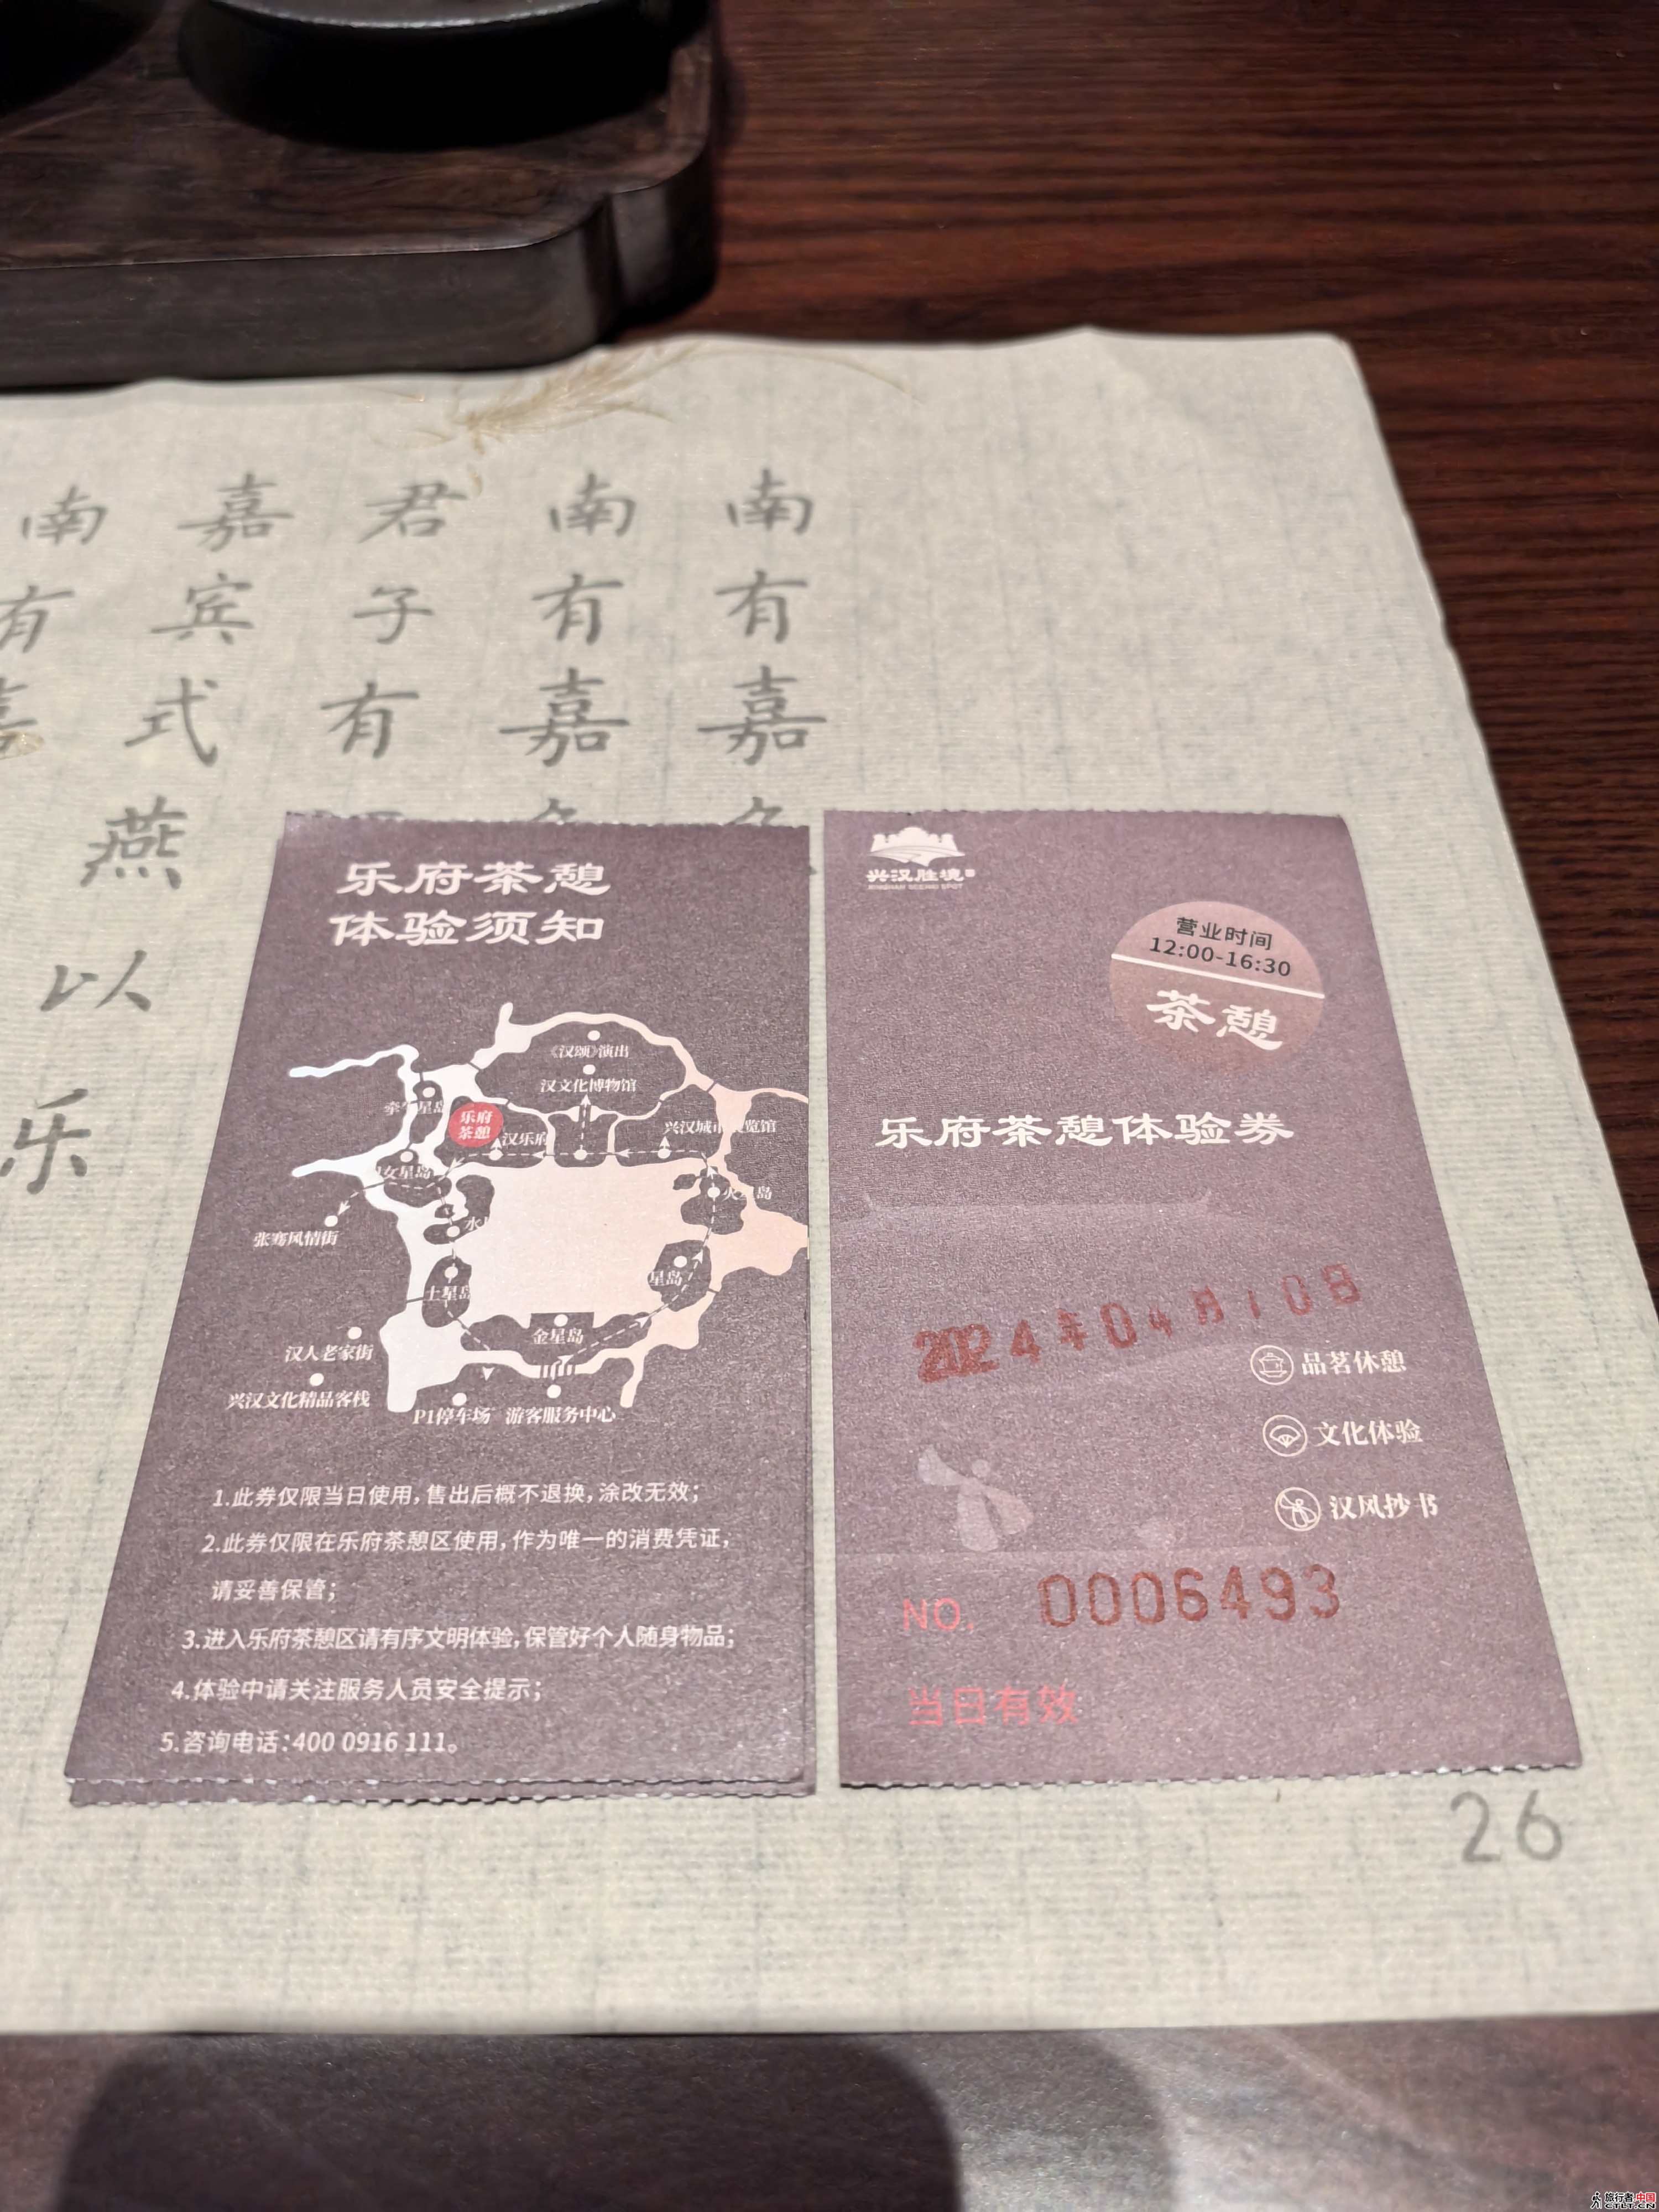 南有嘉
南有嘉
君子有
嘉宾式燕以乐
南有嘉
乐府茶憩
体验须知
《汉颂》演出
汉文化博物馆
牵牛星岛
乐府
茶憩
汉乐府
兴汉城市展览馆
女星岛
火星岛
张骞风情街
水
土星岛
星岛
金星岛
汉人老家街
兴汉文化精品客栈
P1停车场
游客服务中心
1.此券仅限当日使用,售出后概不退换,涂改无效;
2.此券仅限在乐府茶憩区使用,作为唯一的消费凭证,
请妥善保管;
3.进入乐府茶憩区请有序文明体验,保管好个人随身物品;
4.体验中请关注服务人员安全提示;
5.咨询电话:400 0916 111。
兴汉胜境
XINGHAN SCENIC SPOT
营业时间
12:00-16:30
茶憩
乐府茶憩体验券
2024年04月10日
品茗休憩
文化体验
汉风抄书
NO. 0006493
当日有效
26
旅行者中国